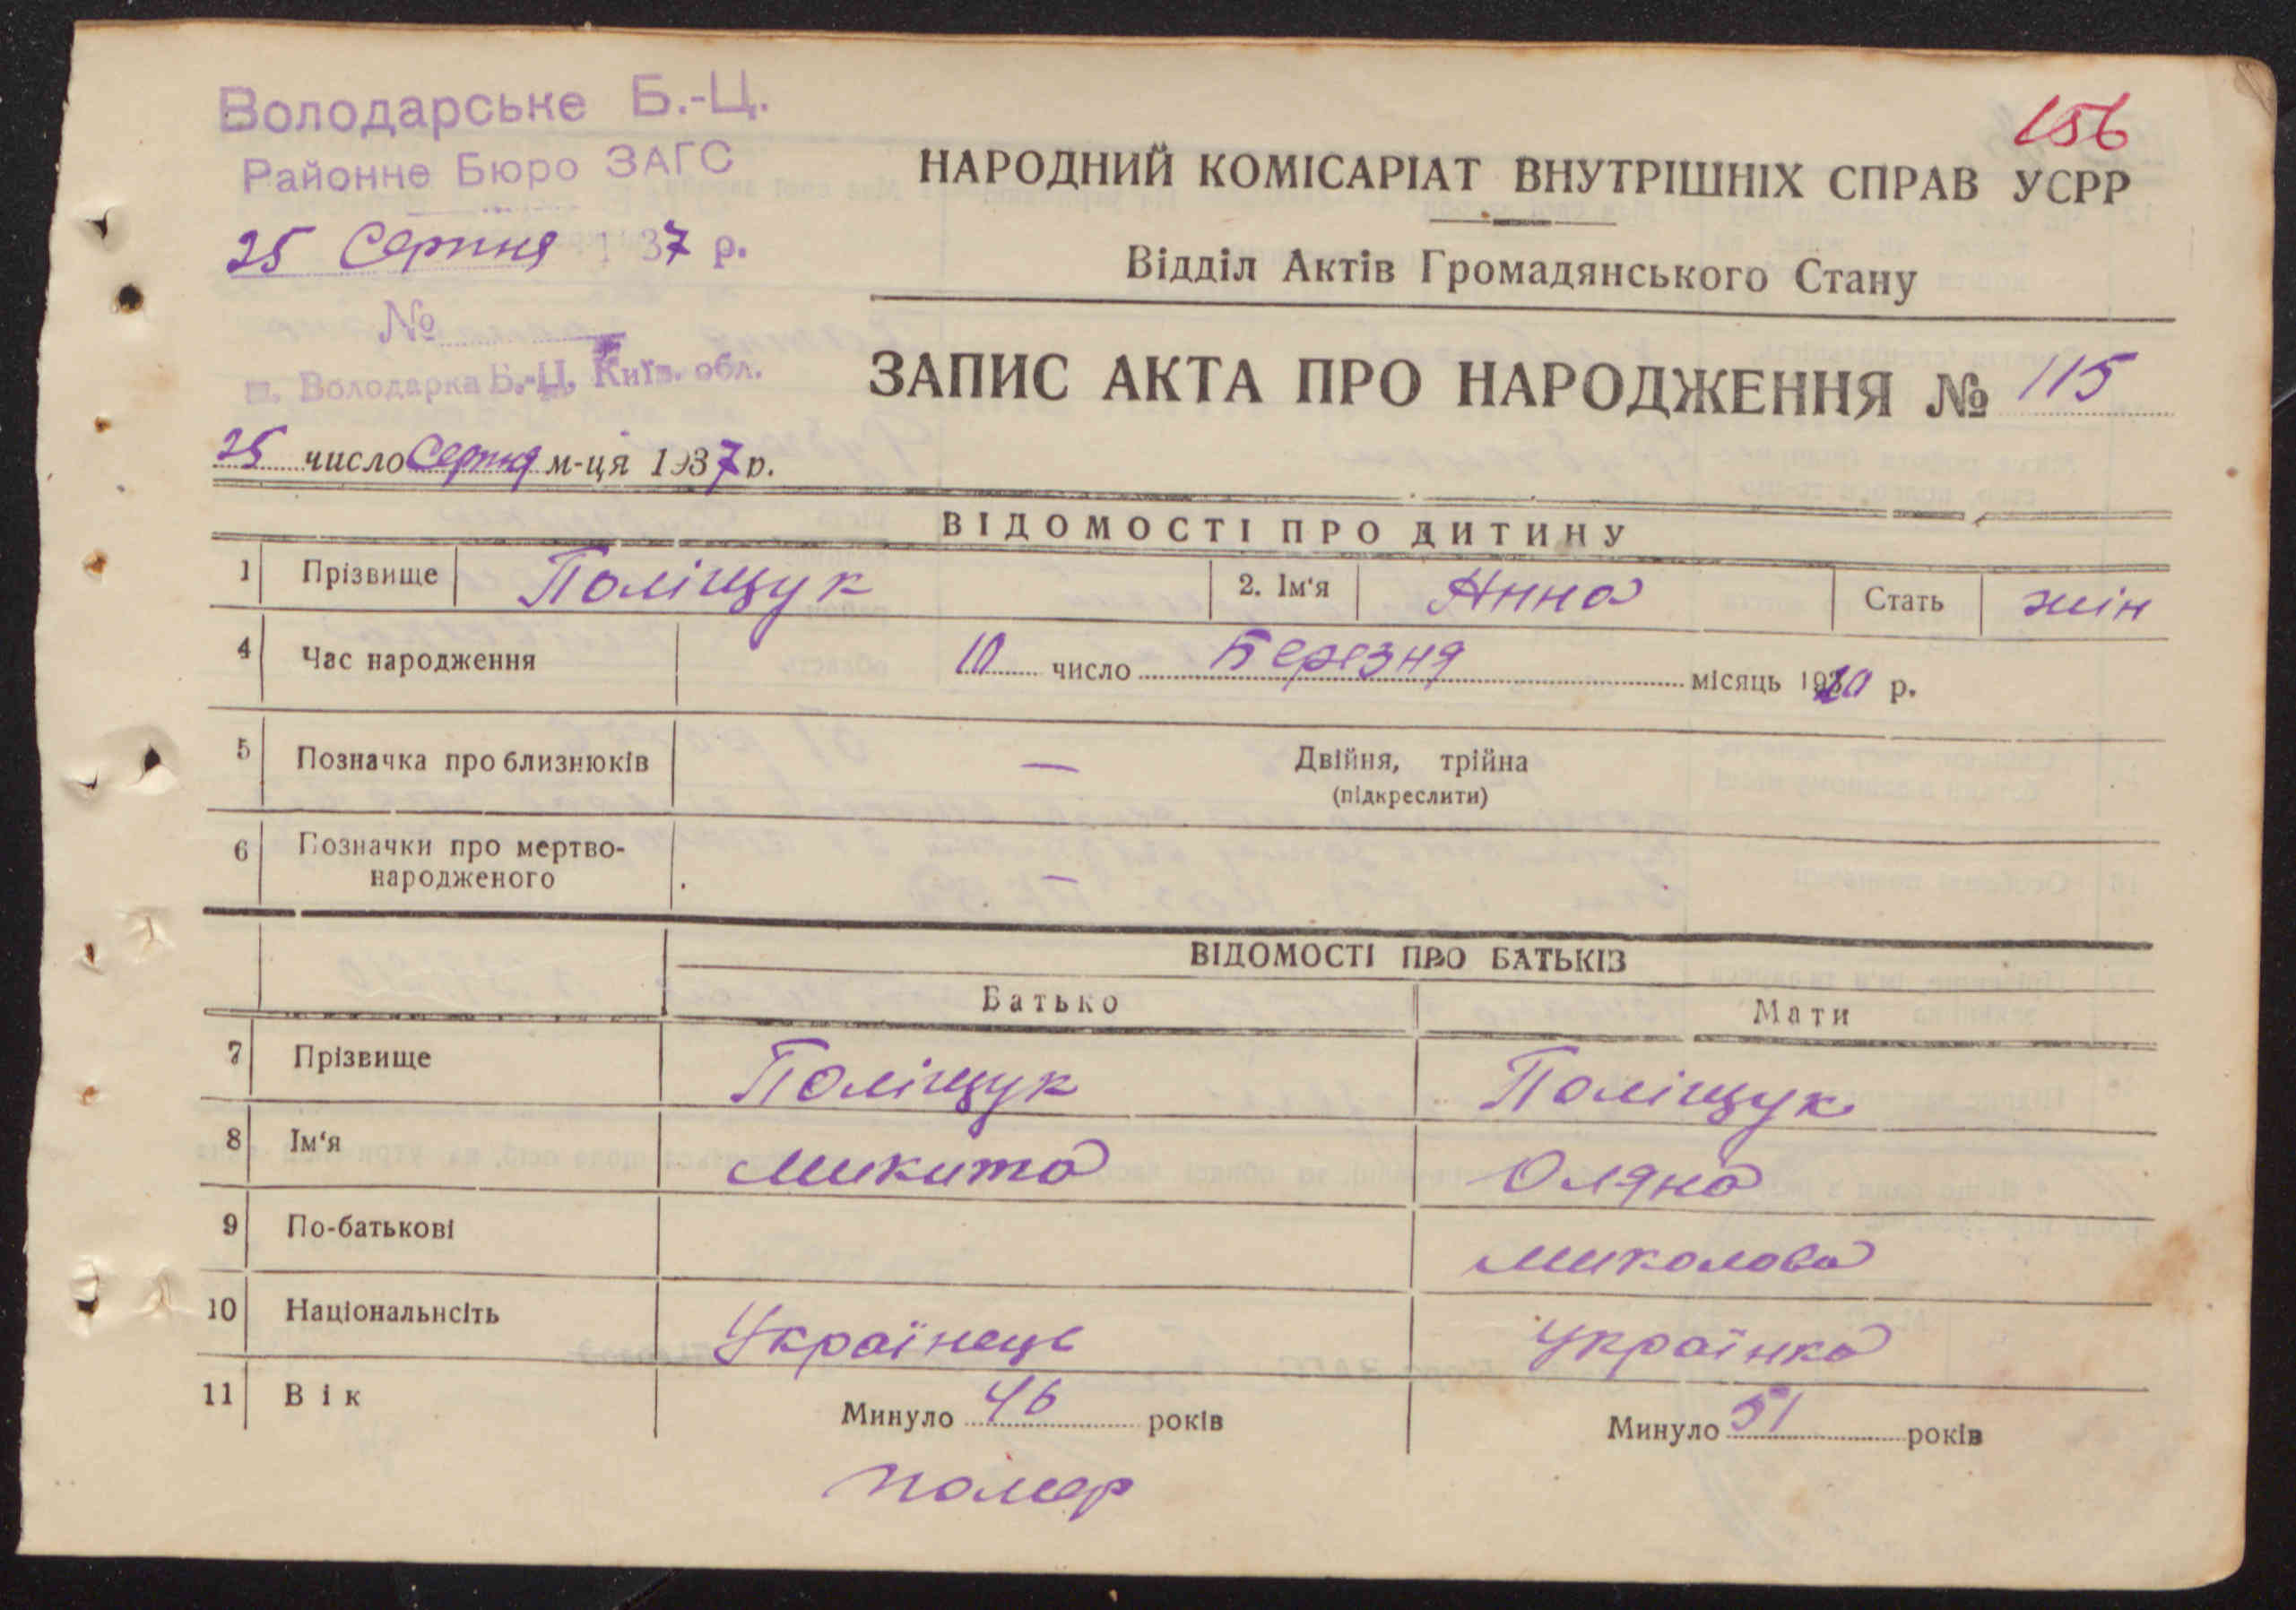 156
Володарське Б.-Ц.
Районне Бюро ЗАГС
25 Серпня 137 р.
№
м. Володарка Б.-Ц. Київ. обл.
НАРОДНИЙ КОМІСАРІАТ ВНУТРІШНІХ СПРАВ УСРР
Відділ Актів Громадянського Стану
ЗАПИС АКТА ПРО НАРОДЖЕННЯ № 115
25 число Серпня м-ця 1937 р.
ВІДОМОСТІ ПРО ДИТИНУ
1 Прізвище Поліщук 2. Ім'я Анна Стать жін
4 Час народження 10 число Березня місяць 1920 р.
5 Позначка про близнюків — Двійня, трійна
(підкреслити)
6 Позначки про мертво-
народженого —
ВІДОМОСТІ ПРО БАТЬКІВ
Батько Мати
7 Прізвище Поліщук Поліщук
8 Ім'я Микита Оляна
9 По-батькові Миколова
10 Національнсіть Українець Українка
11 Вік Минуло 46 років Минуло 51 років
помер